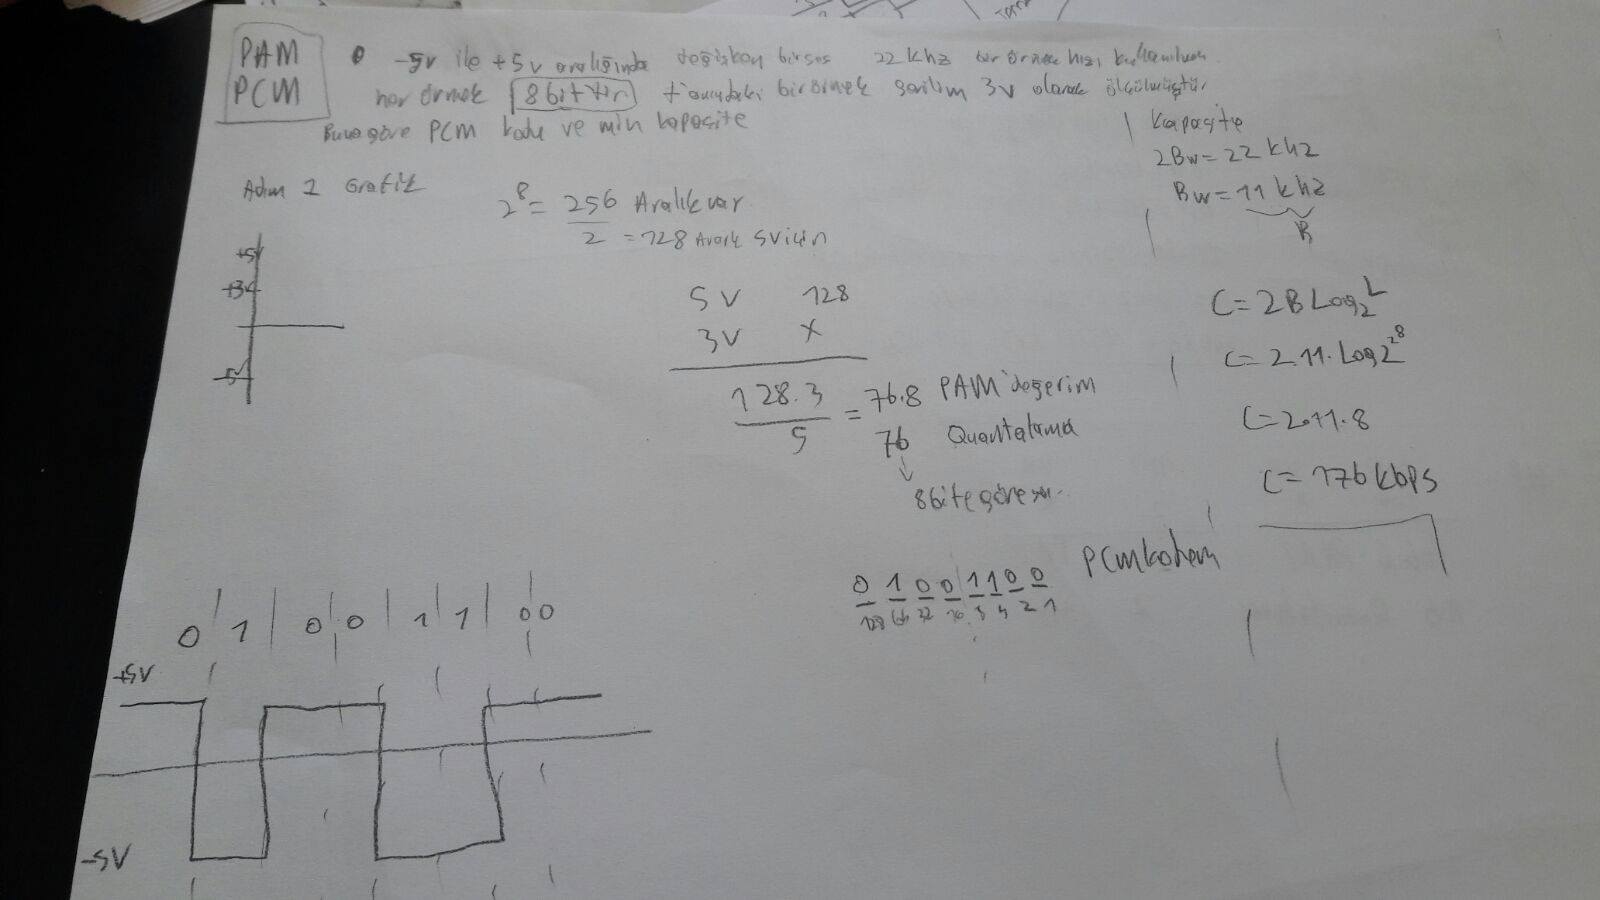 PAM
PCM
-5v ile +5v aralığında değişken bir ses 22 khz bir örnek hızı kullanılıyor
her örnek 8 bittir t anındaki bir örnek gerilim 3v olarak ölçülmüştür
Buna göre PCM kodu ve min kapasite
Adım 1 Grafik
+5V
+3V
-5V
2^8 = 256 Aralık var
2 = 128 Aralık 5V için
5V 128
3V X
128.3
5
= 76.8 PAM değerim
76 Quantalama
8 bite göre
0 1 0 0 1 1 0 0 PCM kodum
128 64 32 16 8 4 2 1
Kapasite
2Bw = 22 khz
Bw = 11 khz
B
C = 2B Log2 L
C = 2.11.Log2 2^8
C = 2.11.8
C = 176 kbps
0 1 0 0 1 1 0 0
+5V
-5V